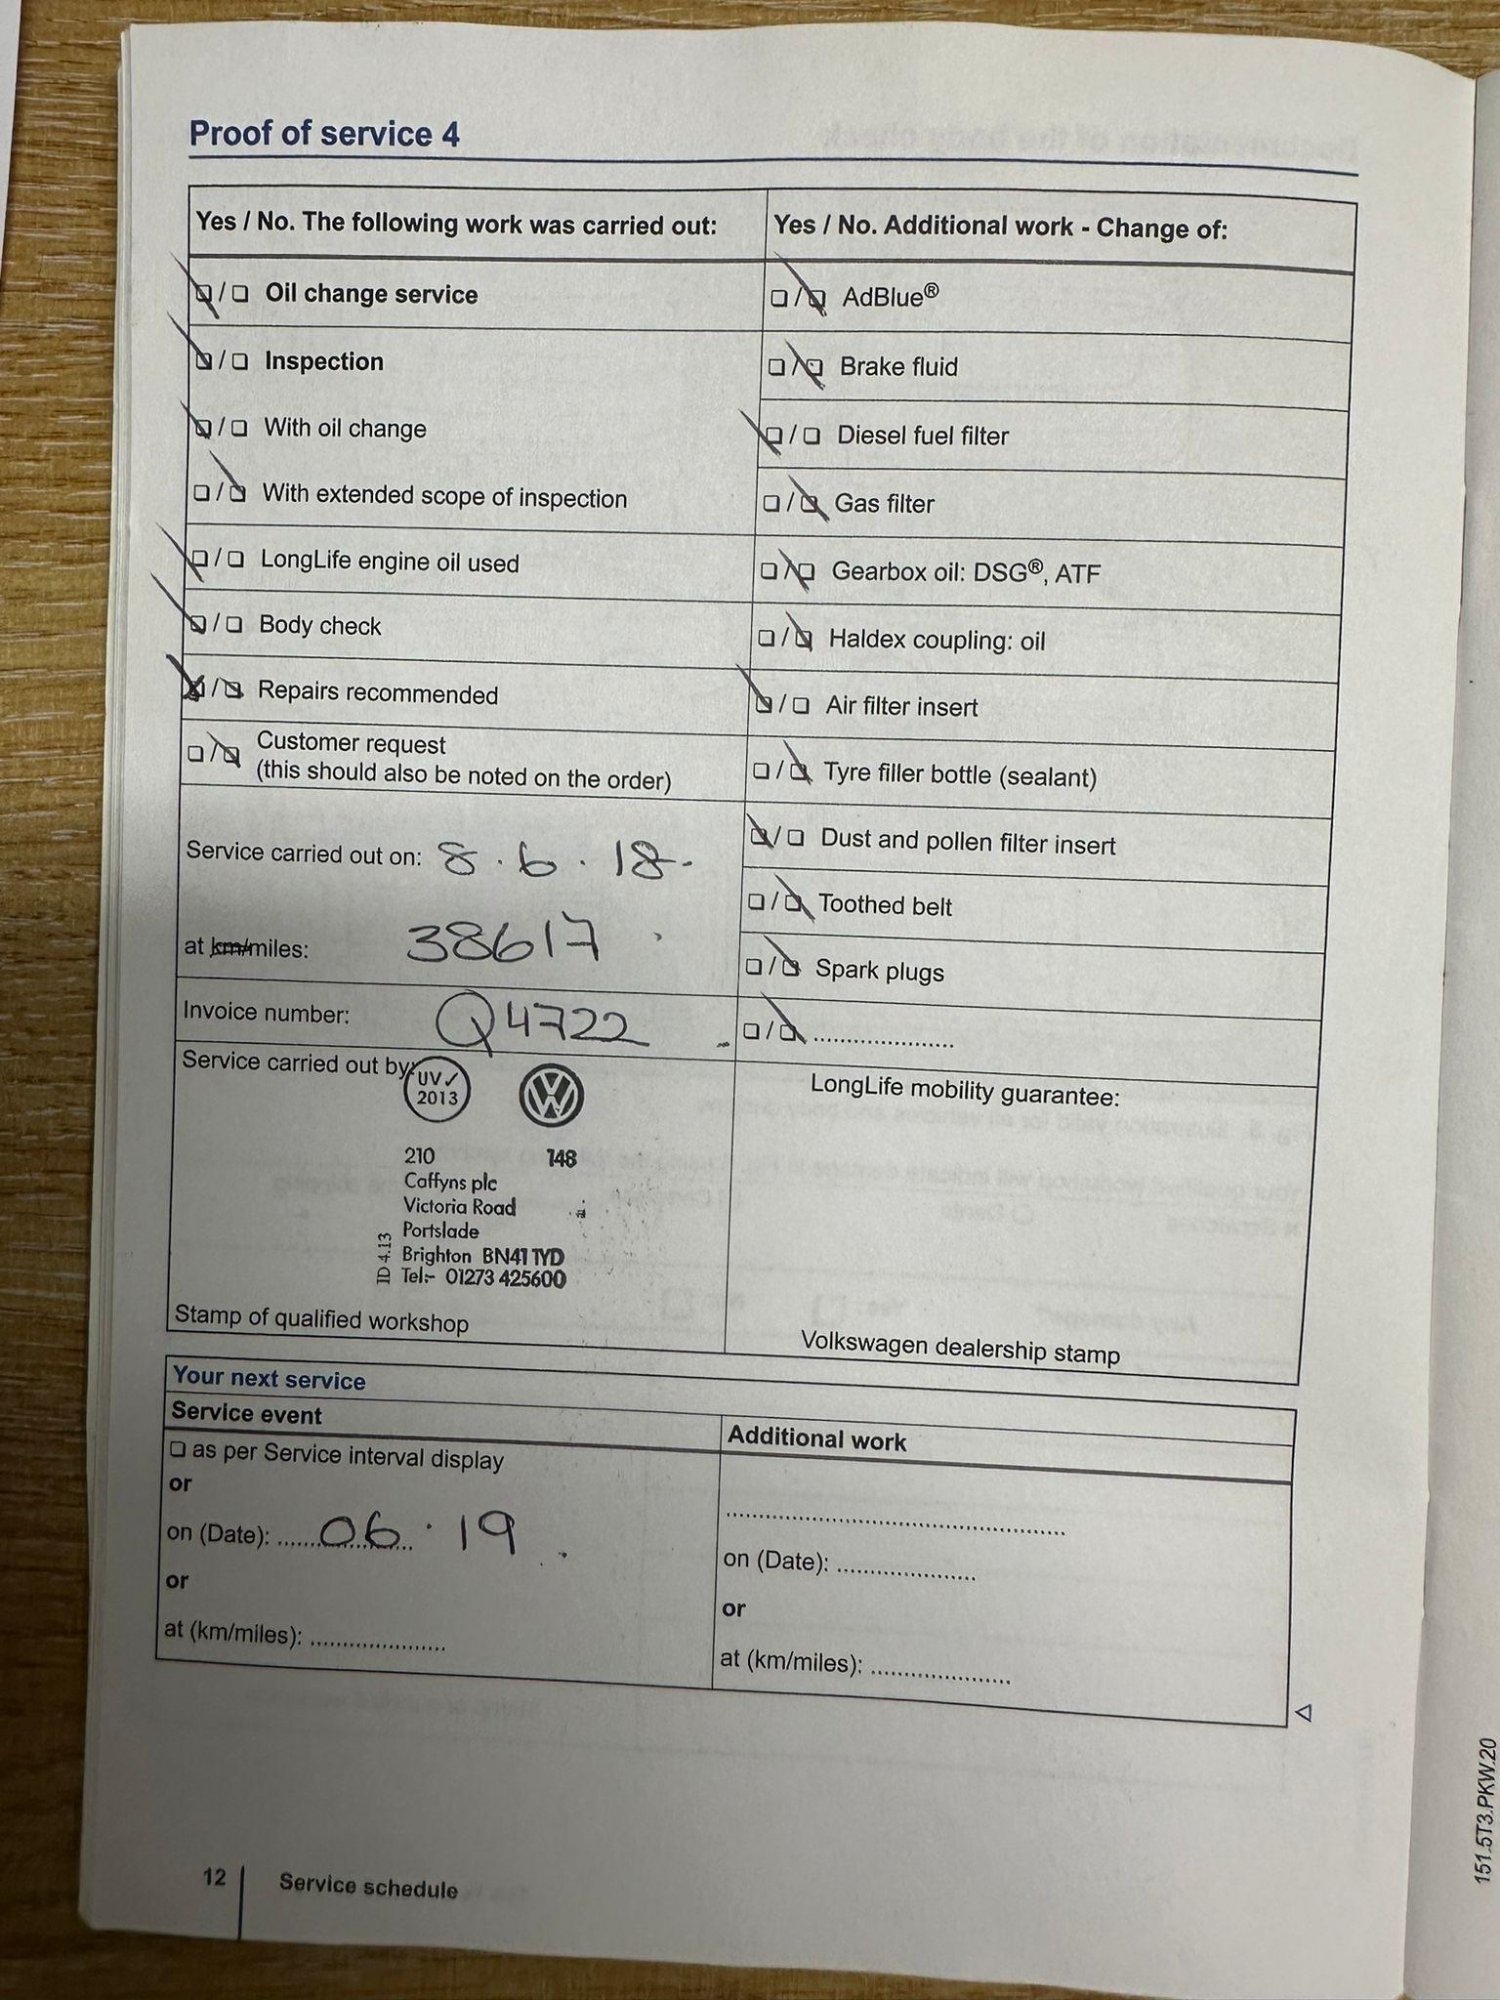 Proof of service 4
Yes / No. The following work was carried out:
Yes / No. Additional work - Change of:
☐ / ☐ Oil change service
☐ / ☐ AdBlue®
☐ / ☐ Inspection
☐ / ☐ Brake fluid
☐ / ☐ With oil change
☐ / ☐ Diesel fuel filter
☐ / ☐ With extended scope of inspection
☐ / ☐ Gas filter
☐ / ☐ LongLife engine oil used
☐ / ☐ Gearbox oil: DSG®, ATF
☐ / ☐ Body check
☐ / ☐ Haldex coupling: oil
☐ / ☐ Repairs recommended
☐ / ☐ Air filter insert
☐ / ☐ Customer request
(this should also be noted on the order)
☐ / ☐ Tyre filler bottle (sealant)
Service carried out on: 8.6.18.
☐ / ☐ Dust and pollen filter insert
☐ / ☐ Toothed belt
at km/miles: 38617
☐ / ☐ Spark plugs
Invoice number: Q4722
☐ / ☐ .....................
Service carried out by:
UV✓
2013
LongLife mobility guarantee:
210 148
Caffyns plc
Victoria Road
Portslade
Brighton BN41 1YD
Tel:- 01273 425600
ID 4.13
Stamp of qualified workshop
Volkswagen dealership stamp
Your next service
Service event
Additional work
☐ as per Service interval display
or
on (Date): 06.19
on (Date): .....................
or
or
at (km/miles): .....................
at (km/miles): .....................
12
Service schedule
151.5T3.PKW.20